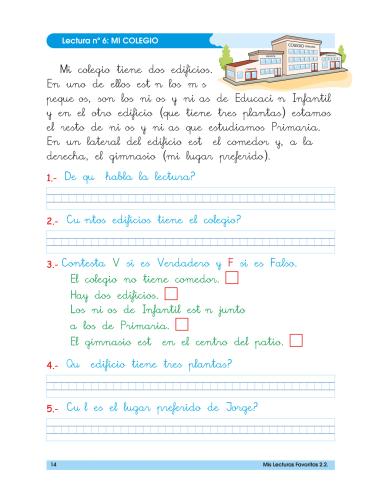 Lectura nº 6: MI COLEGIO
Mi colegio tiene dos edificios.
En uno de ellos est n los m s
peque os, son los ni os y ni as de Educaci n Infantil
y en el otro edificio (que tiene tres plantas) estamos
el resto de ni os y ni as que estudiamos Primaria.
En un lateral del edificio est el comedor y, a la
derecha, el gimnasio (mi lugar preferido).
1.- De qu habla la lectura?
2.- Cu ntos edificios tiene el colegio?
3.- Contesta V si es Verdadero y F si es Falso.
El colegio no tiene comedor.
Hay dos edificios.
Los ni os de Infantil est n junto
a los de Primaria.
El gimnasio est en el centro del patio.
4.- Qu edificio tiene tres plantas?
5.- Cu l es el lugar preferido de Jorge?
14
Mis Lecturas Favoritas 2.2.